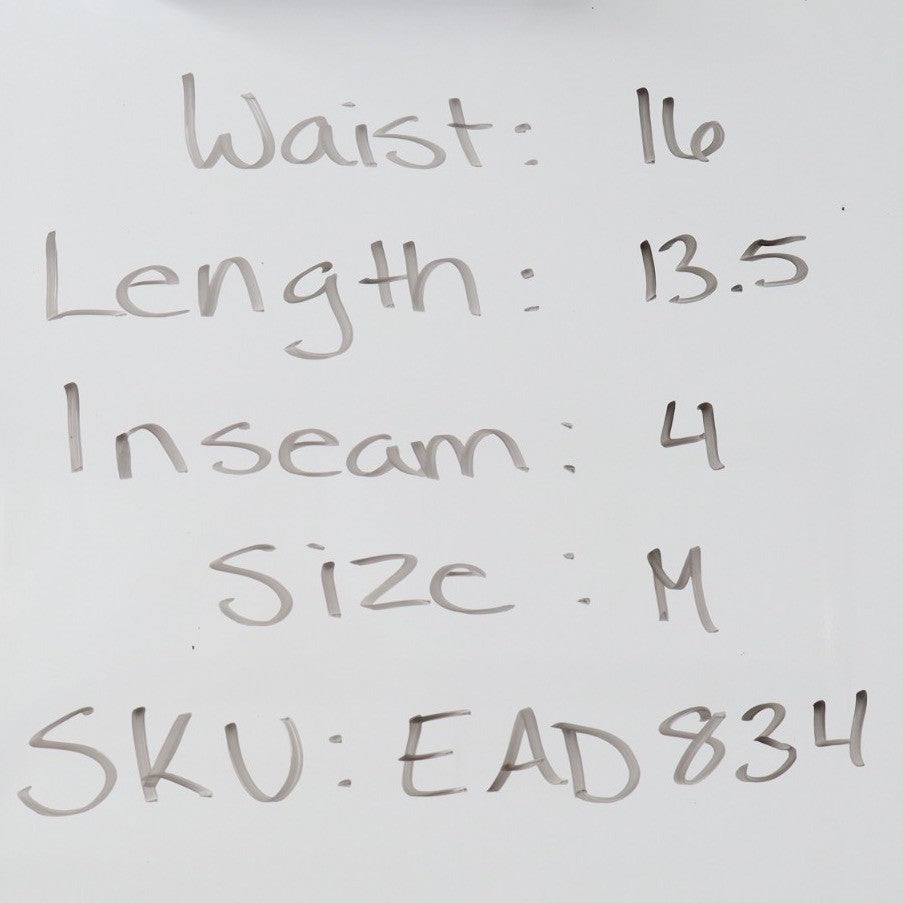 Waist: 16
Length: 13.5
Inseam: 4
Size: M
SKU: EAD834